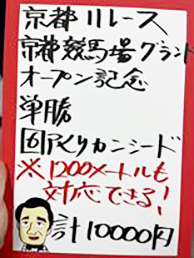 京都11レース
京都競馬場グランド
オープン記念
単勝
⑥アグリカンシード
※1200メートルも
対応できる!
計10000円